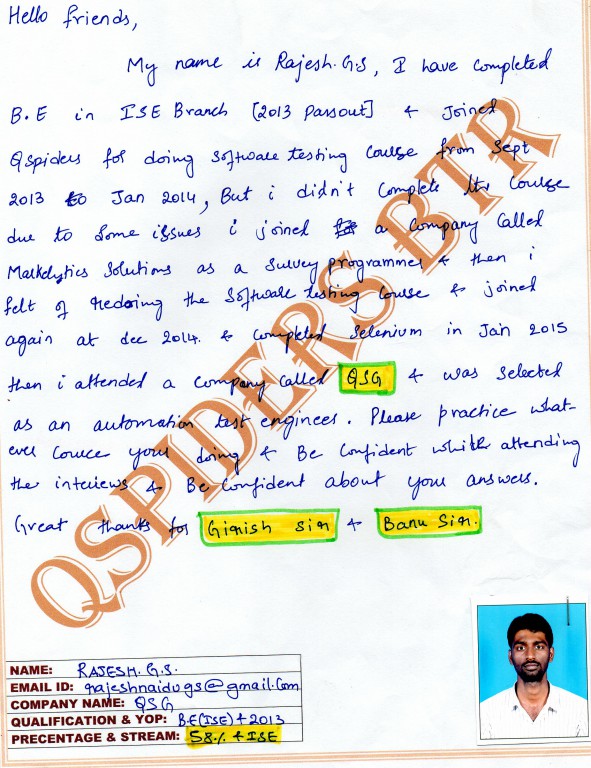 Hello friends,
My name is Rajesh.G.S, I have completed
B.E in ISE Branch [2013 passout] & Joined
Qspiders for doing software testing course from Sept
2013 to Jan 2014, But i didn't complete the course
due to some issues i joined a company called
Markelytics Solutions as a survey programmer & then i
felt of redoing the software testing course & joined
again at dec 2014. & completed selenium in Jan 2015
then i attended a company called QSG & was selected
as an automation test engineer. Please practice what-
ever cource your doing & Be confident while attending
the interviews & Be confident about your answers.
Great thanks for Girish sir & Banu Sir.
QSPIDERS BTR
NAME: RAJESH.G.S.
EMAIL ID: rajeshnaidugs@gmail.com
COMPANY NAME: QSG
QUALIFICATION & YOP: B.E(ISE) & 2013
PRECENTAGE & STREAM: 58.% & ISE